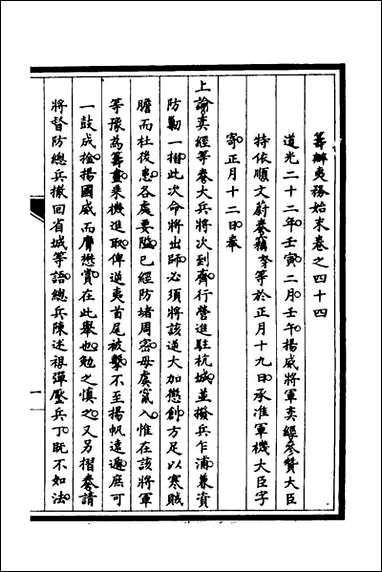 籌辦夷務始末卷之四十四
道光二十二年壬寅二月壬午揚威將軍奕經參贊大臣
特依順文蔚奏竊奴才等於正月十九日承准軍機大臣字
寄正月十二日奉
上諭奕經等奏大兵將次到齊行營進駐杭城並撥兵乍浦兼資
防勦一摺此次命將出師必須將該逆大加懲創方足以寒賊
膽而杜後患各處要隘已經防堵周密毋虞竄入惟在該將軍
等豫為籌畫乘機進取俾逆夷首尾被擊不至揚帆遠遁庶可
一鼓成擒揚國威而膺懋賞在此舉也勉之慎之又另摺奏請
將督防總兵撤回省城等語總兵陳述祖彈壓兵丁既不如法